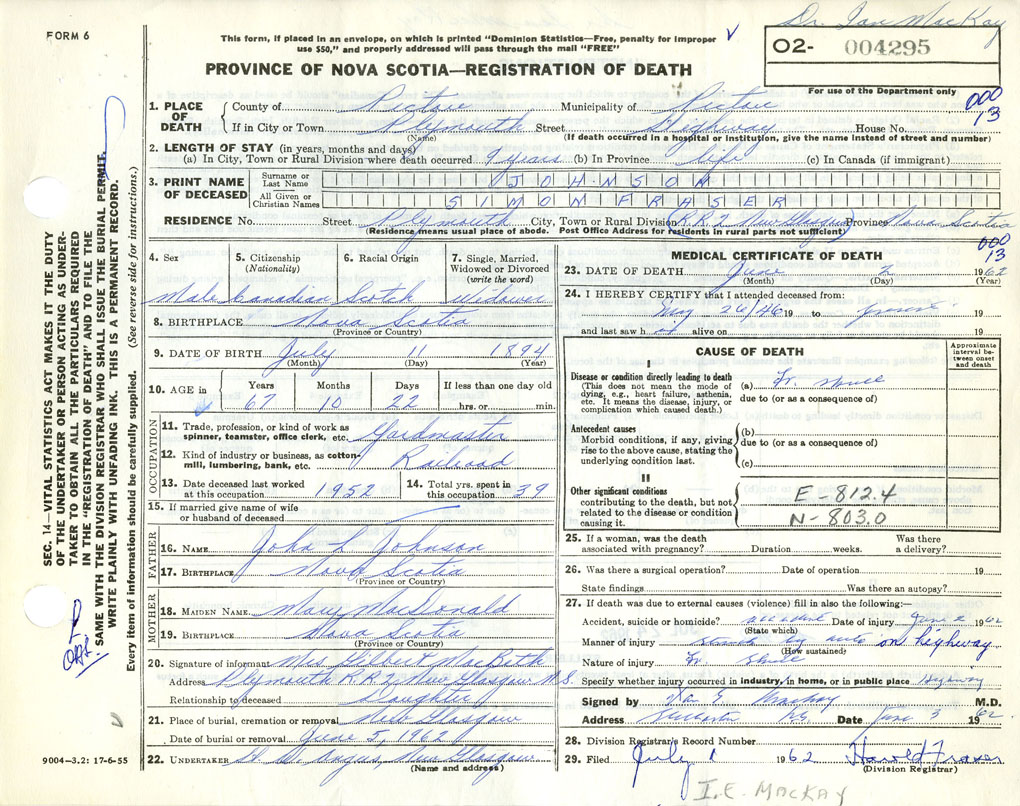 Dr. Ian MacKay
FORM 6
This form, if placed in an envelope, on which is printed "Dominion Statistics—Free, penalty for improper
use $50," and properly addressed will pass through the mail "FREE"
O2- 004295
For use of the Department only
PROVINCE OF NOVA SCOTIA—REGISTRATION OF DEATH
000
13
1. PLACE OF DEATH { County of Pictou Municipality of Pictou
If in City or Town Plymouth Street Highway House No.
(Name) (If death occurred in a hospital or institution, give the name instead of street and number)
2. LENGTH OF STAY (in years, months and days)
(a) In City, Town or Rural Division where death occurred 9 years (b) In Province life (c) In Canada (if immigrant)
3. PRINT NAME OF DECEASED { Surname or Last Name JOHNSON
All Given or Christian Names SIMON FRASER
RESIDENCE No. Street Plymouth City, Town or Rural Division R.R.2 New Glasgow Province Nova Scotia
(Residence means usual place of abode. Post Office Address for residents in rural parts not sufficient)
4. Sex 5. Citizenship (Nationality) 6. Racial Origin 7. Single, Married, Widowed or Divorced (write the word)
Male Canadian Scotch Widower
8. BIRTHPLACE Nova Scotia
(Province or Country)
9. DATE OF BIRTH July 11 1894
(Month) (Day) (Year)
10. AGE in Years Months Days If less than one day old
67 10 22 hrs. or min.
OCCUPATION
11. Trade, profession, or kind of work as spinner, teamster, office clerk, etc. Yardmaster
12. Kind of industry or business, as cotton-mill, lumbering, bank, etc. Railroad
13. Date deceased last worked at this occupation 1952 14. Total yrs. spent in this occupation 39
15. If married give name of wife or husband of deceased
FATHER
16. NAME John L Johnson
17. BIRTHPLACE Nova Scotia
(Province or Country)
MOTHER
18. MAIDEN NAME Mary MacDonald
19. BIRTHPLACE Nova Scotia
(Province or Country)
20. Signature of informant Mrs Gilbert MacBeth
Address Plymouth R.R.2 New Glasgow N.S.
Relationship to deceased Daughter
21. Place of burial, cremation or removal New Glasgow
Date of burial or removal June 5, 1962
22. UNDERTAKER New Glasgow
(Name and address)
9004-3.2: 17-6-55
SEC. 14—VITAL STATISTICS ACT MAKES IT THE DUTY
OF THE UNDERTAKER OR PERSON ACTING AS UNDER-
TAKER TO OBTAIN ALL THE PARTICULARS REQUIRED
IN THE "REGISTRATION OF DEATH" AND TO FILE THE
SAME WITH THE DIVISION REGISTRAR WHO SHALL ISSUE THE BURIAL PERMIT.
WRITE PLAINLY WITH UNFADING INK. THIS IS A PERMANENT RECORD.
Every item of information should be carefully supplied. (See reverse side for instructions.)
MEDICAL CERTIFICATE OF DEATH
000
13
23. DATE OF DEATH June 2 1962
(Month) (Day) (Year)
24. I HEREBY CERTIFY that I attended deceased from:
May 26/46 19 to 19
and last saw h alive on 19
CAUSE OF DEATH
Approximate interval between onset and death
I
Disease or condition directly leading to death
(This does not mean the mode of dying, e.g., heart failure, asthenia, etc. It means the disease, injury, or complication which caused death.)
(a) Fr. skull
due to (or as a consequence of)
Antecedent causes
Morbid conditions, if any, giving rise to the above cause, stating the underlying condition last.
(b)
due to (or as a consequence of)
(c)
II
Other significant conditions
contributing to the death, but not related to the disease or condition causing it.
E-812.4
N-803.0
25. If a woman, was the death associated with pregnancy? Duration weeks. Was there a delivery?
26. Was there a surgical operation? Date of operation 19
State findings Was there an autopsy?
27. If death was due to external causes (violence) fill in also the following:—
Accident, suicide or homicide? accident Date of injury June 2 1962
(State which)
Manner of injury struck by auto on highway
(How sustained)
Nature of injury Fr. skull
Specify whether injury occurred in industry, in home, or in public place Highway
Signed by Ian E. MacKay M.D.
Address Stellarton NS Date June 3 1962
28. Division Registrar's Record Number
29. Filed July 1 1962 Harold Fraser
(Division Registrar)
I.E. MACKAY